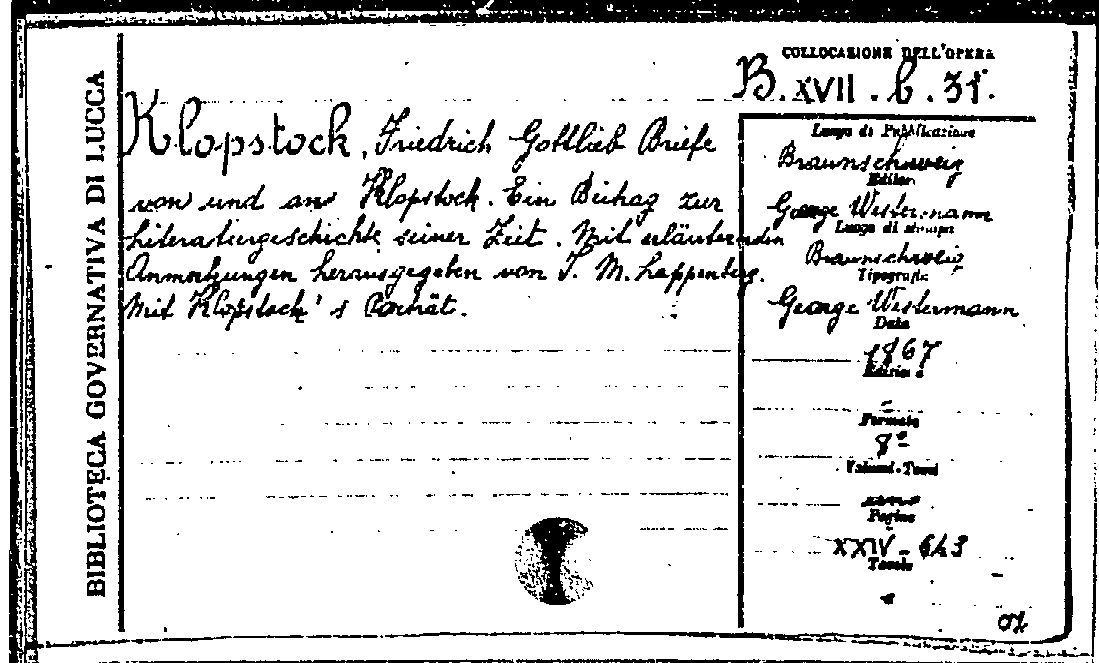 BIBLIOTECA GOVERNATIVA DI LUCCA
COLLOCAZIONE DELL'OPERA
B. XVII . b . 31.
Klopstock, Friedrich Gottlieb Briefe
von und an Klopstock. Ein Beitrag zur
Literaturgeschichte seiner Zeit. Mit erläuternden
Anmerkungen herausgegeben von J. M. Lappenberg.
Mit Klopstock's Porträt.
Luogo di Pubblicazione
Braunschweig
Editore
George Westermann
Luogo di stampa
Braunschweig
Tipografia
George Westermann
Data
1867
Edizione
-
Formato
8º
Volumi-Tomi
Pagine
XXIV - 643
Tavole